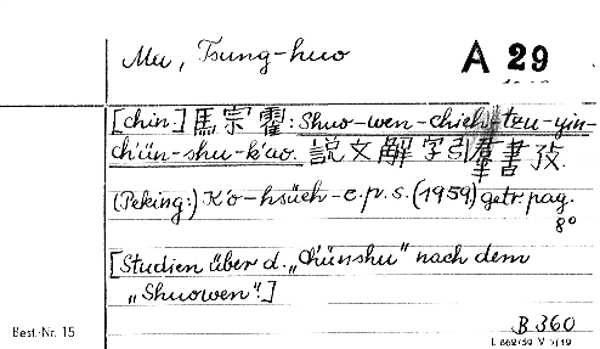 Ma, Tsung-huo
A 29
[chin.] 馬宗霍: Shuo-wen-chieh-tzu-yin-
ch'ün-shu-k'ao. 説文解字引羣書攷.
(Peking:) K'o-hsüeh-c.p.s. (1959) getr. pag.
8°
[Studien über d. „Chünshu" nach dem
„Shuowen".]
B 360
Best.-Nr. 15